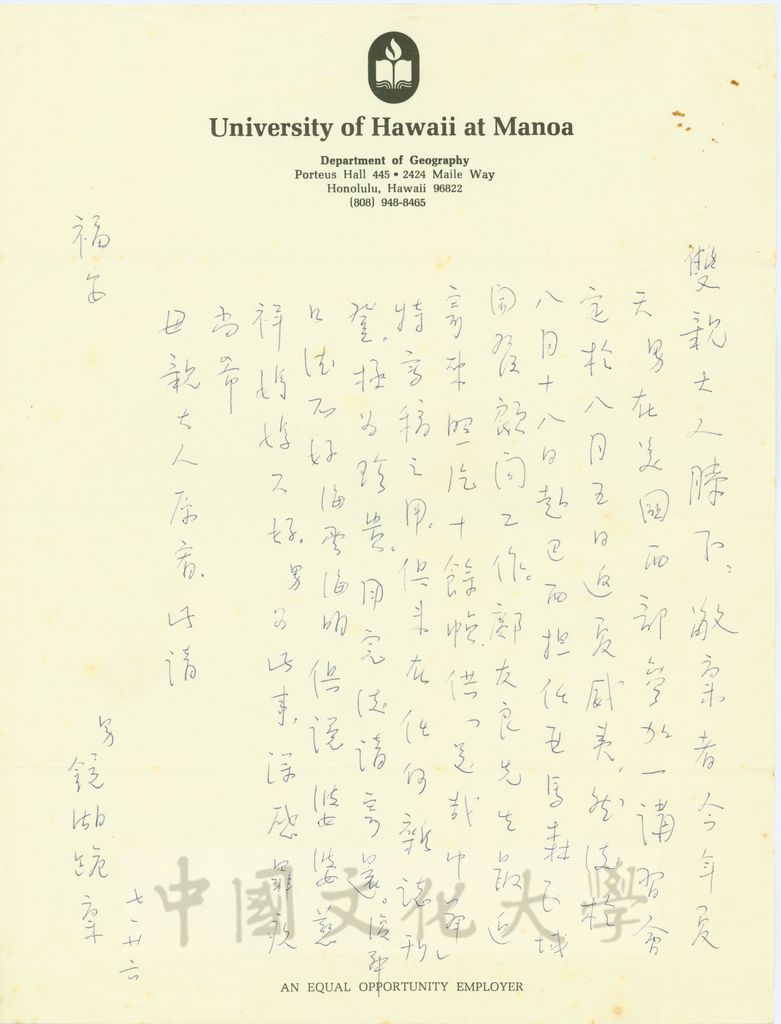 University of Hawaii at Manoa
Department of Geography
Porteus Hall 445 • 2424 Maile Way
Honolulu, Hawaii 96822
(808) 948-8465
雙親大人膝下:敬稟者今年夏
天男在美國西部參加一講習會
定於八月五日返夏威夷,然後於
八月十八日赴巴西担任亞馬森區域
開發顧問工作。鄺友良先生最近
寄來照片十餘幀,供
特寫稿之用,俱未在任何雜誌刊
登,極為珍貴。用完後請寄還。
口德不好海雲海明俱說婆婆慈
祥媽媽不好。男為此事,深感罪疚
尚希
母親大人原宥。此請
福安
男
鏡湖跪稟
七、廿六
中國文化大學
AN EQUAL OPPORTUNITY EMPLOYER